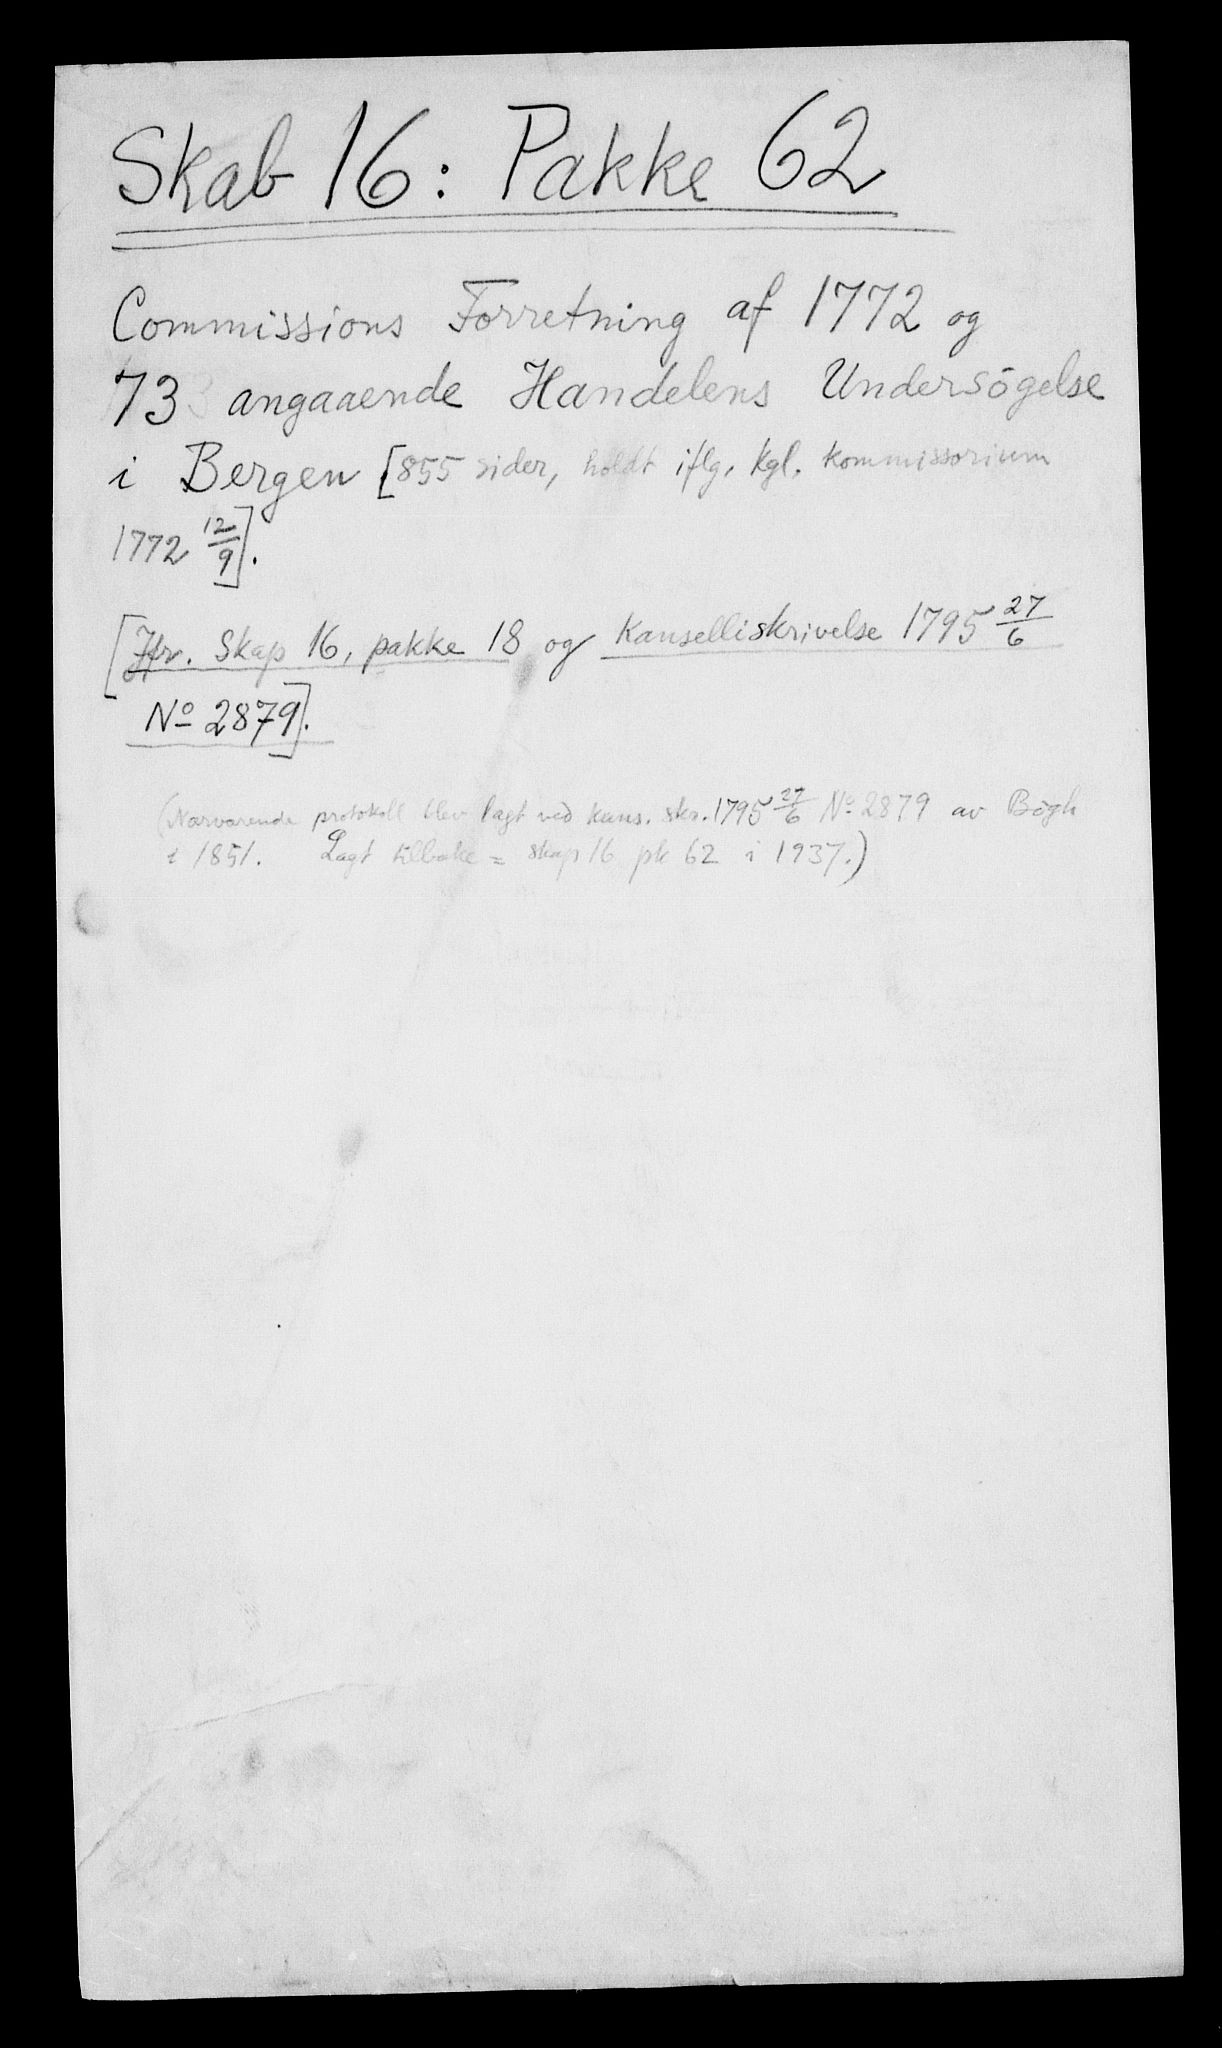 Skab 16: Pakke 62
Commissions Forretning af 1772 og
73 angaaende Handelens Undersögelse
i Bergen [855 sider, holdt iflg. kgl. kommissorium
1772 12/9].
[Jfr. Skap 16, pakke 18 og Kanselliskrivelse 1795 27/6
No 2879].
(Nærværende protokoll blev lagt ved kans. skr. 1795 27/6 No 2879 av Bögh
i 1851. Lagt tilbake = skap 16 pk 62 i 1937.)